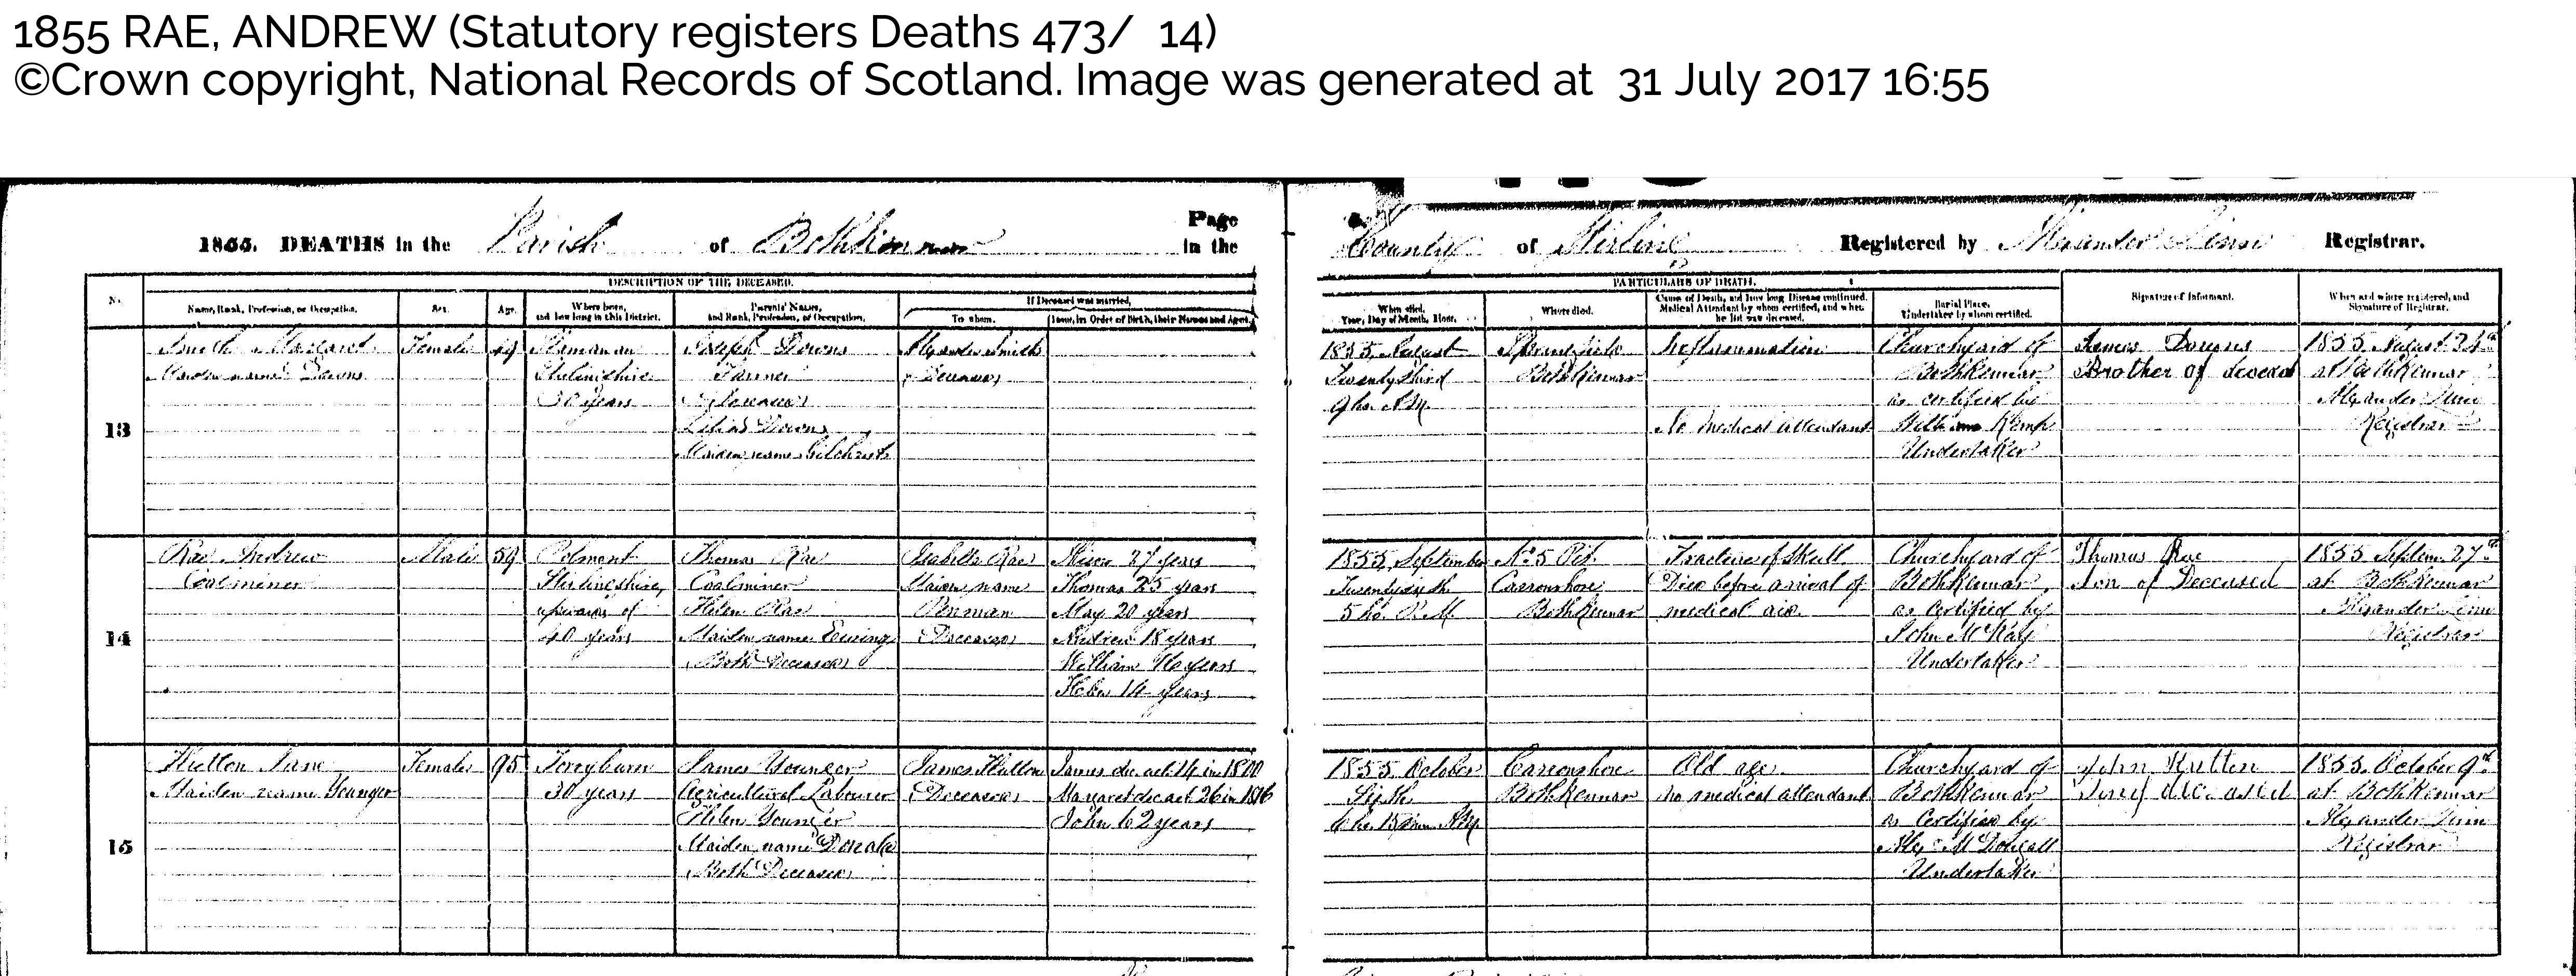 1855 RAE, ANDREW (Statutory registers Deaths 473/ 14)
©Crown copyright, National Records of Scotland. Image was generated at 31 July 2017 16:55
Page
1855. DEATHS in the Parish of Bothkennar in the
County of Stirling Registered by Alexander Registrar.
DESCRIPTION OF THE DECEASED.
No.
Name, Rank, Profession, or Occupation.
Sex.
Age.
Where born,
and how long in this District.
Parents' Names,
and Rank, Profession, or Occupation.
If Deceased was married,
To whom.
Issue, in Order of Birth, their Names and Ages.
PARTICULARS OF DEATH.
When died.
Year, Day of Month, Hour.
Where died.
Cause of Death, and how long Disease continued.
Medical Attendant by whom certified, and when
he last saw deceased.
Burial Place,
Undertaker by whom certified.
Signature of Informant.
When and where registered, and
Signature of Registrar.
13
Smith Margaret
Maiden name Downs
Female
Slamanan
Stirlingshire
30 years
Joseph Downs
Farmer
Deceased
Lilias Downs
Maiden name Gilchrist
Alexander Smith
Deceased
1855, August
Twenty third
9 ho. A.M.
Bothkennar
Inflammation
No medical attendant
Churchyard of
Bothkennar
as certified by
William Kemp
Undertaker
James Downs
Brother of deceased
1855 August 24th
at Bothkennar
Alexander
Registrar
14
Rae Andrew
Coalminer
Male
59
Polmont
Stirlingshire,
upwards of
40 years
Thomas Rae
Coalminer
Helen Rae
Maiden name Ewing
Both Deceased
Isabella Rae
Maiden name
Penman
Deceased
27 years
Thomas 25 years
May 20 years
Andrew 18 years
William 16 years
Helen 14 years
1855, September
Twenty sixth
5 ho. P.M.
No 5 Pit
Carronshore
Bothkennar
Fracture of Skull
Died before arrival of
medical aid.
Churchyard of
Bothkennar,
as certified by
John McKay
Undertaker
Thomas Rae
Son of Deceased
1855 Septem. 27th
at Bothkennar
Alexander
Registrar
15
Hutton Jane
Maiden name Younger
Female
95
Torryburn
30 years
James Younger
Agricultural Labourer
Helen Younger
Maiden name
Both Deceased
James Hutton
Deceased
James die. aet. 14 in 1800
Margaret die aet 26 in 1816
John 62 years
1855 October
Sixth
6 ho. 15 min A.M.
Carronshore
Bothkennar
Old age
No medical attendant
Churchyard of
Bothkennar
as certified by
Alexr McDougall
Undertaker
John Hutton
Son of deceased
1855. October 9th
at Bothkennar
Alexander
Registrar